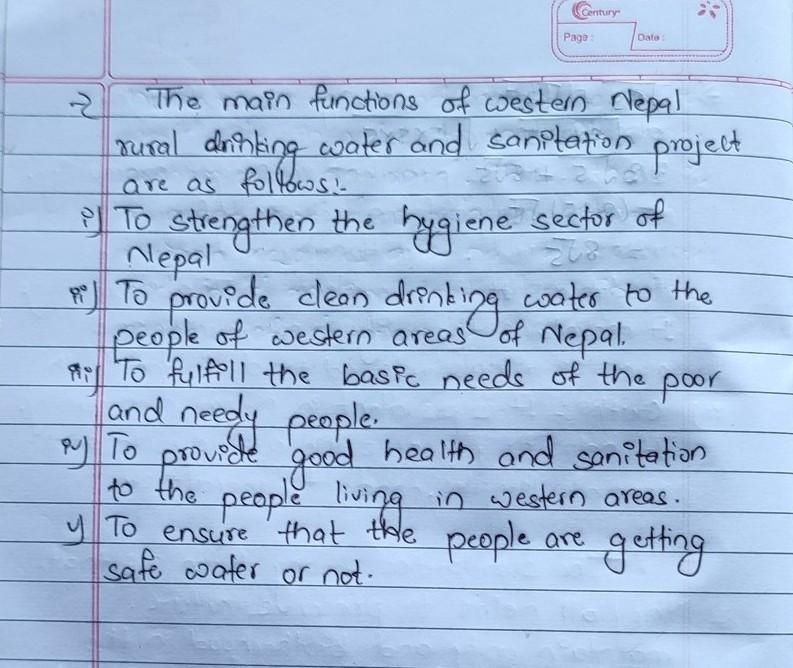 Century
Page :
Date :
→ The main functions of western Nepal
rural drinking water and sanitation project
are as follows:-
i) To strengthen the hygiene sector of
Nepal
ii) To provide clean drinking water to the
people of western areas of Nepal.
iii) To fulfill the basic needs of the poor
and needy people.
iv) To provide good health and sanitation
to the people living in western areas.
v) To ensure that the people are getting
safe water or not.